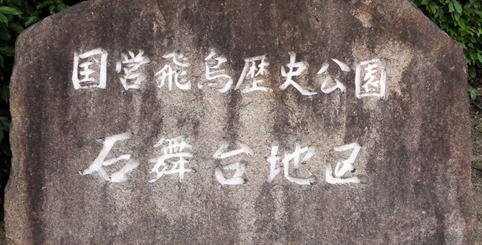 国営飛鳥歴史公園
石舞台地区